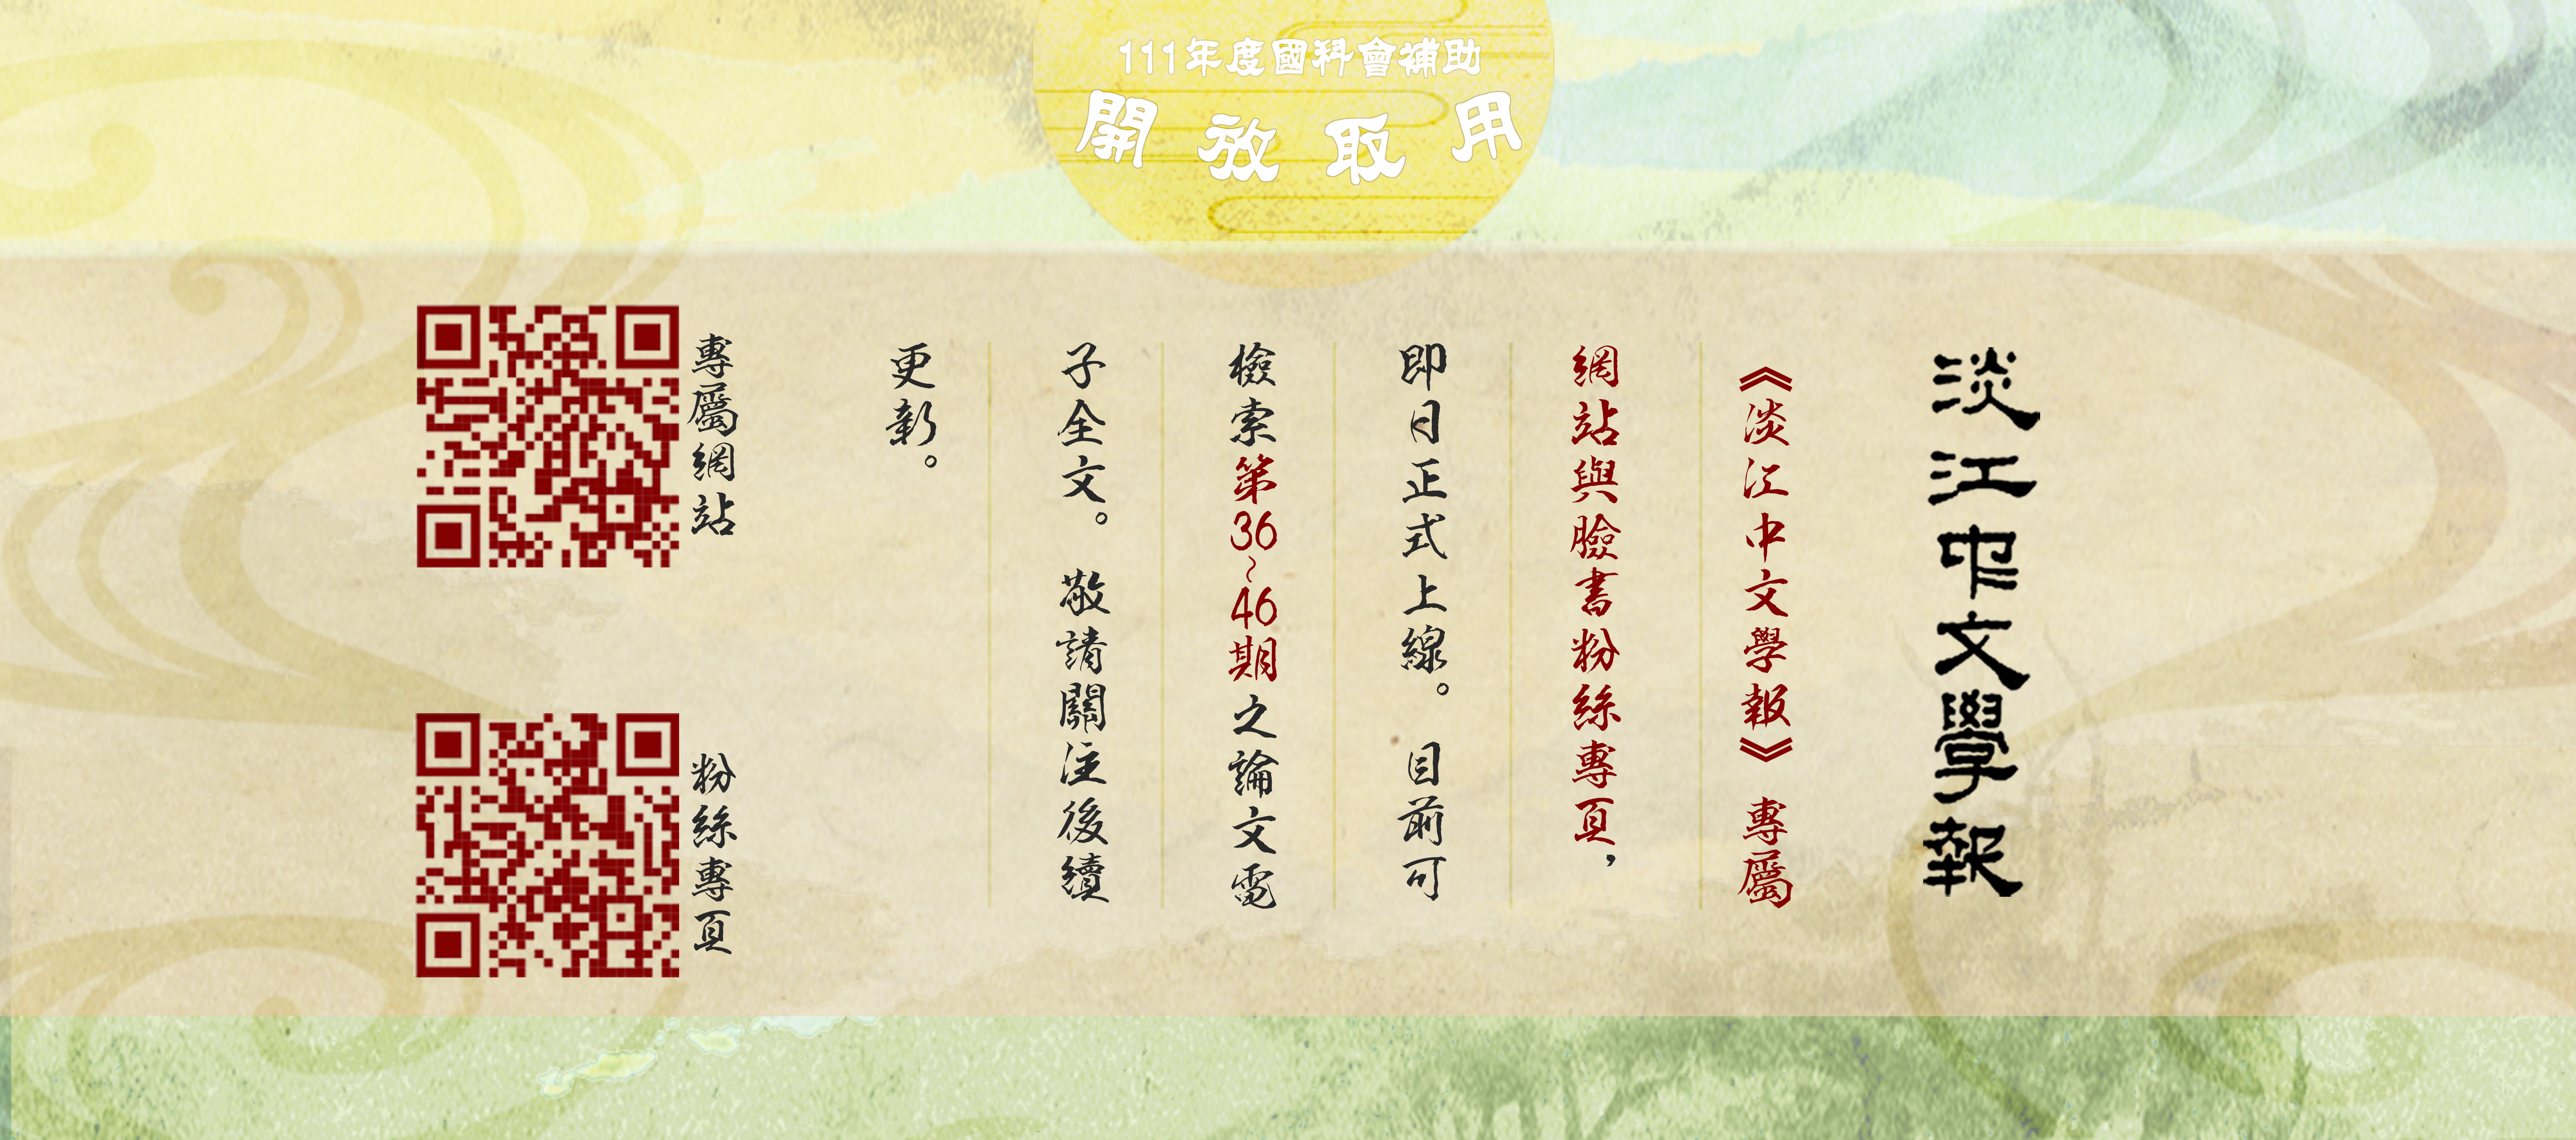 111年度國科會補助
開放取用
淡江中文學報
《淡江中文學報》專屬
網站與臉書粉絲專頁，
即日正式上線。目前可
檢索第36~46期之論文電
子全文。敬請關注後續
更新。
專屬網站
粉絲專頁